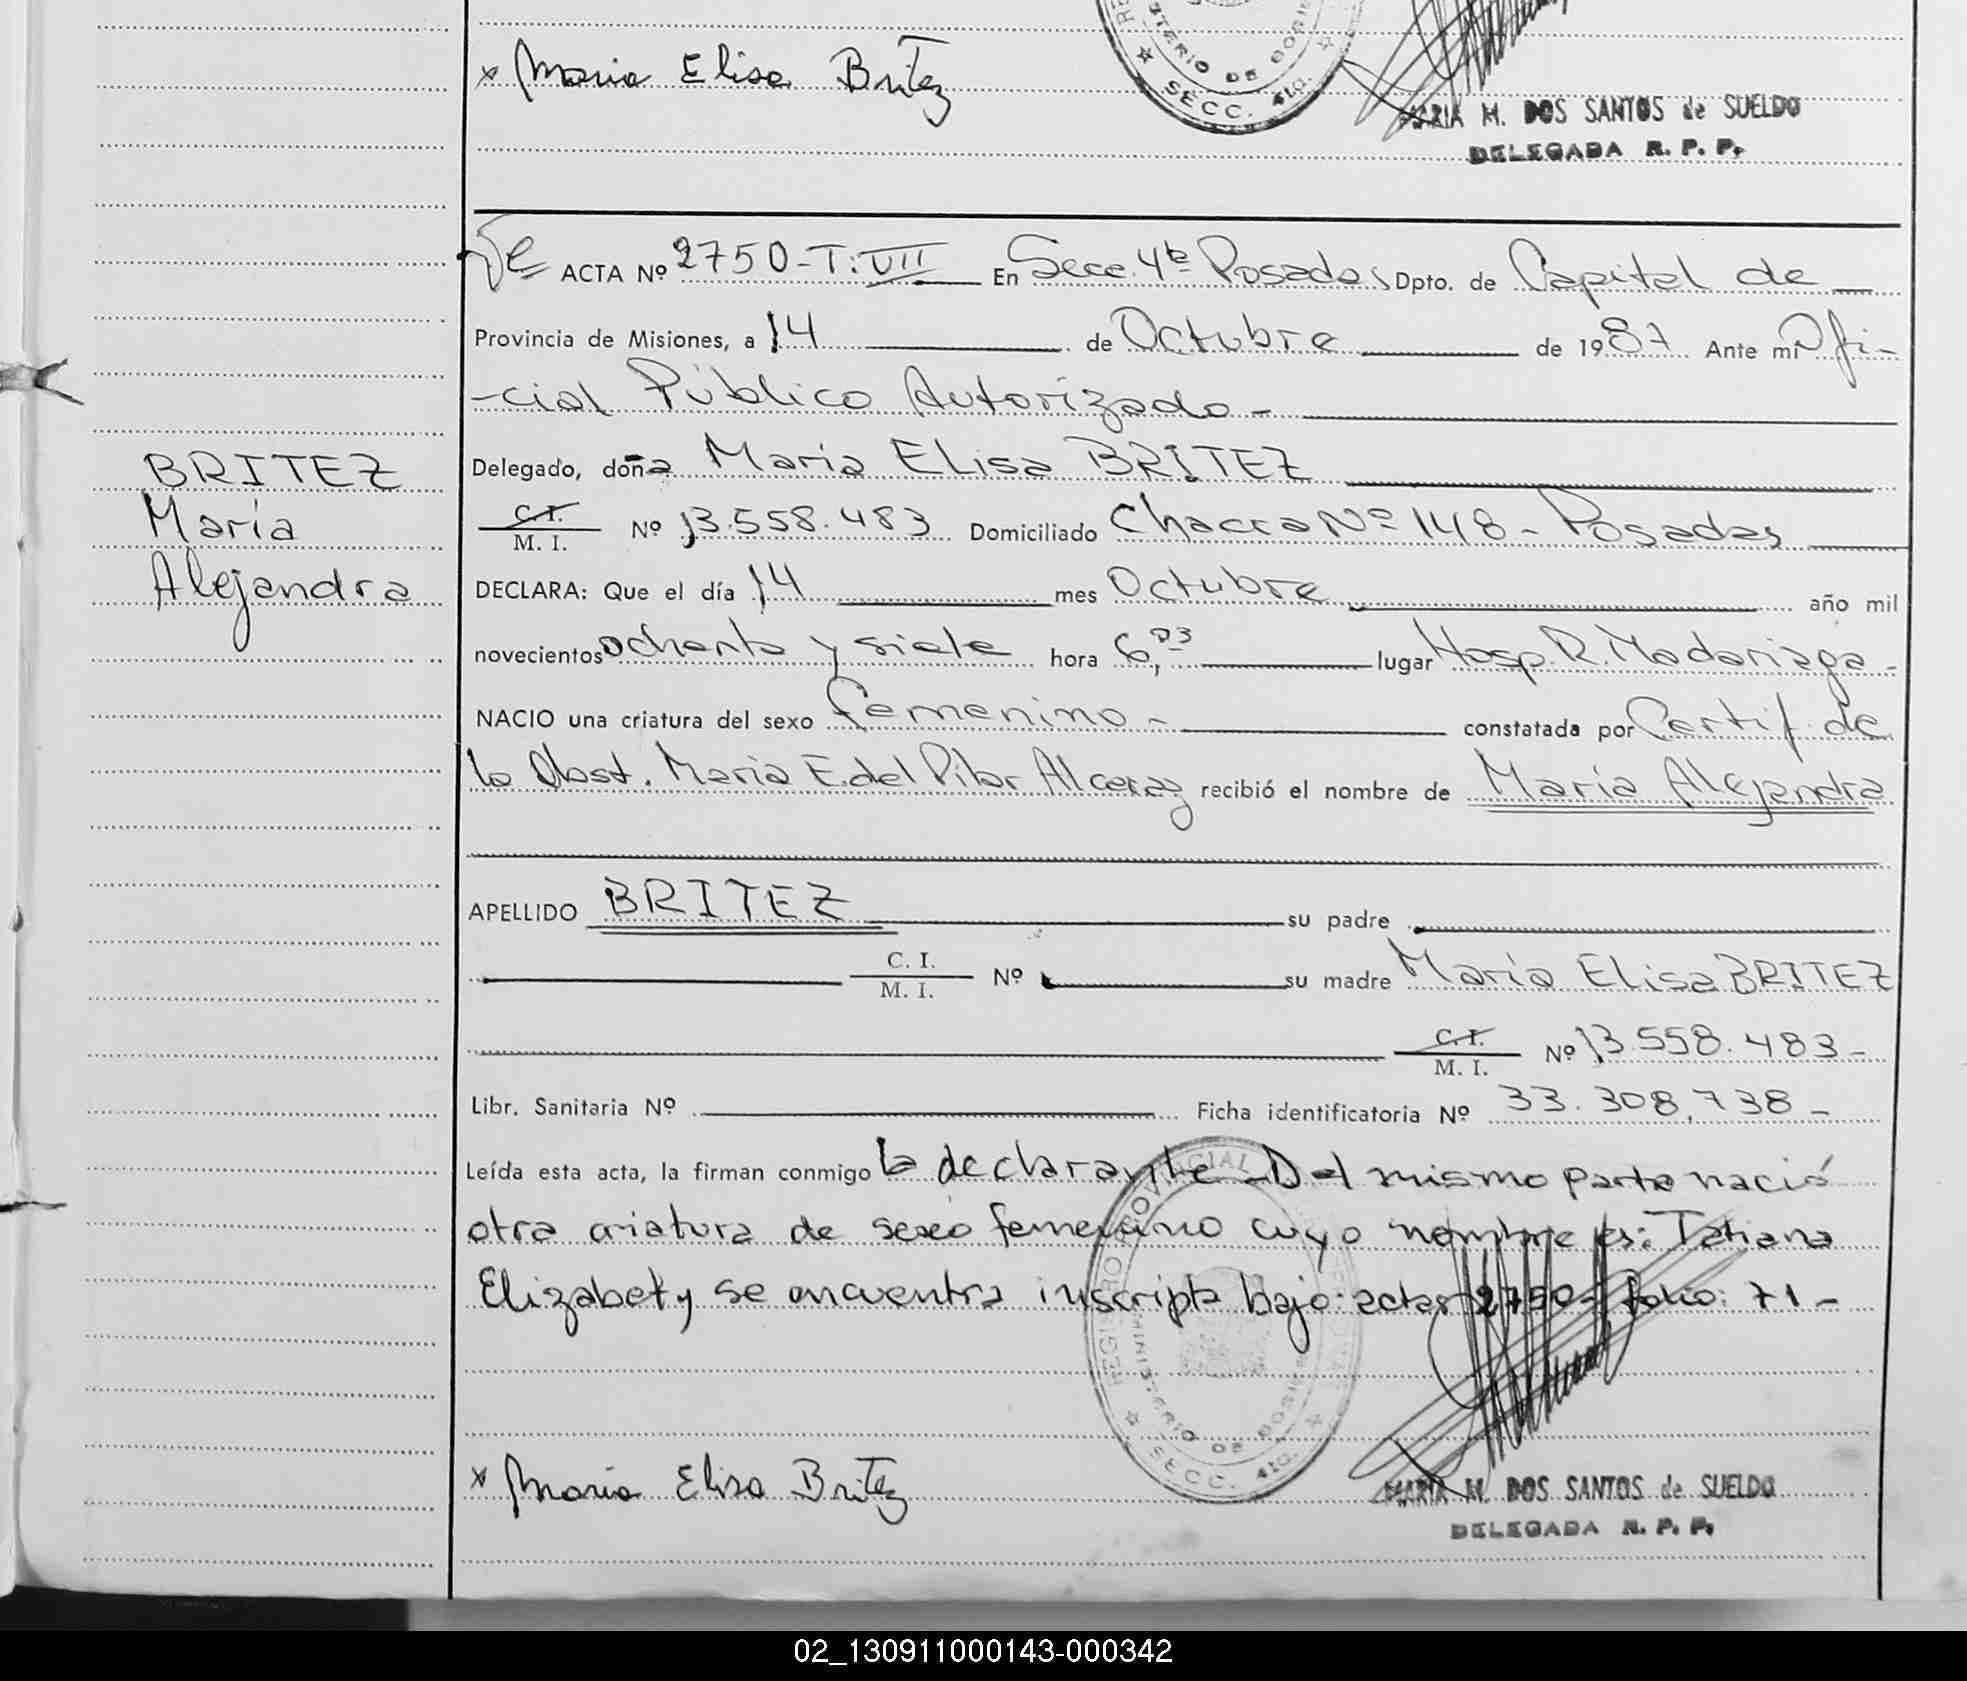 x Maria Elisa Britez
MINISTERIO DE GOBIE
SECC. 4ta.
MARIA M. DOS SANTOS de SUELDO
DELEGADA R. P. P.
ACTA Nº 2750-T:VII En Secc. 4ta Posadas Dpto. de Capital de
Provincia de Misiones, a 14 de Octubre de 1987 Ante mi Ofi-
-cial Público Autorizado-
BRITEZ
María
Alejandra
Delegado, doña María Elisa BRITEZ
C. I.
M. I. Nº 13.558.483 Domiciliado Chacra Nº 148 - Posadas
DECLARA: Que el día 14 mes Octubre año mil
novecientos ochenta y siete hora 6,03 lugar Hosp. R. Madariaga-
NACIO una criatura del sexo femenino- constatada por Certif. de
la Obst. Maria E. del Pilar Alcaraz recibió el nombre de María Alejandra
APELLIDO BRITEZ su padre
C. I.
M. I. Nº su madre María Elisa BRITEZ
C. I.
M. I. Nº 13.558.483-
Libr. Sanitaria Nº Ficha identificatoria Nº 33.308.738-
Leída esta acta, la firman conmigo la declarante - Del mismo parto nació
otra criatura de sexo femenino cuyo nombre es: Tatiana
Elizabet y se encuentra inscripta bajo acta: folio: 71-
REGISTRO PROVINCIAL
MINISTERIO DE GOBIE
SECC. 4ta.
x Maria Elisa Britez
MARIA M. DOS SANTOS de SUELDO
DELEGADA R. P. P.
02_130911000143-000342